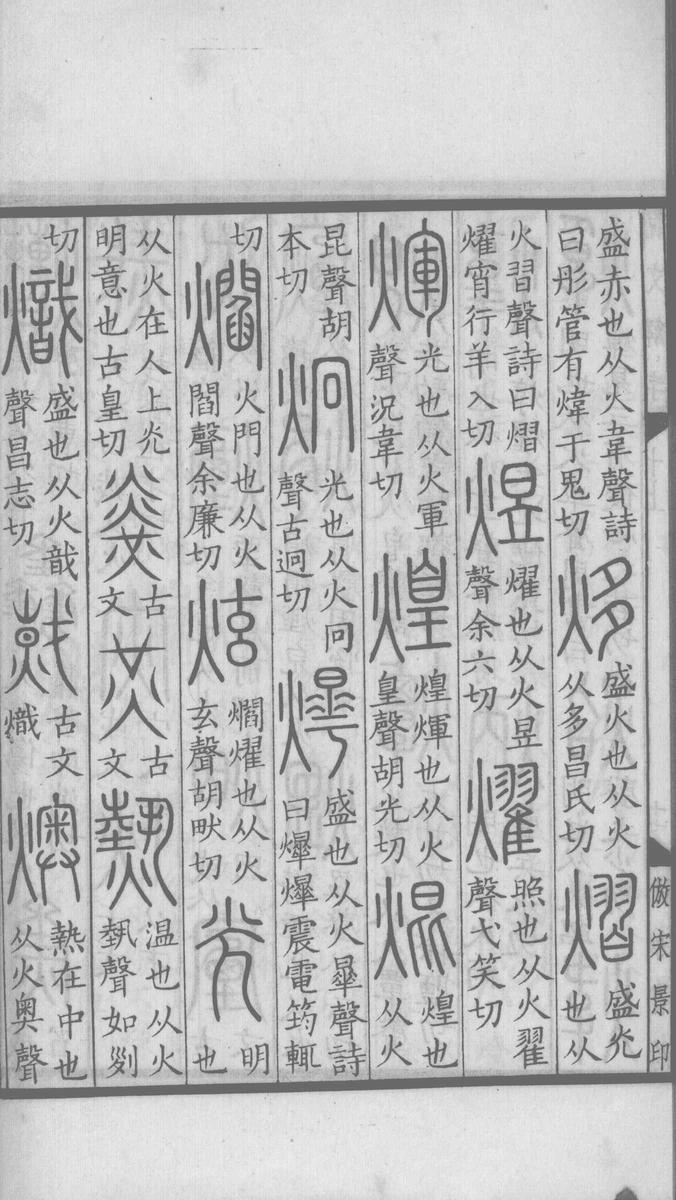 倣宋景印
盛赤也从火韋聲詩
曰彤管有煒于鬼切
㶴
盛火也从火
从多昌氏切
熠
盛灮
也从
火習聲詩曰熠
燿宵行羊入切
煜
燿也从火昱
聲余六切
燿
照也从火翟
聲弋笑切
煇
光也从火軍
聲況韋切
煌
煌煇也从火
皇聲胡光切
焜
煌也
从火
昆聲胡
本切
炯
光也从火冋
聲古迥切
爗
盛也从火㬜聲詩
曰爗爗震電筠輒
切
爓
火門也从火
閻聲余廉切
炫
爓燿也从火
玄聲胡畎切
光
明
也
从火在人上灮
明意也古皇切
古
文
炗
古
文
熱
温也从火
埶聲如
切
熾
盛也从火戠
聲昌志切
古文
熾
燠
熱在中也
从火奥聲